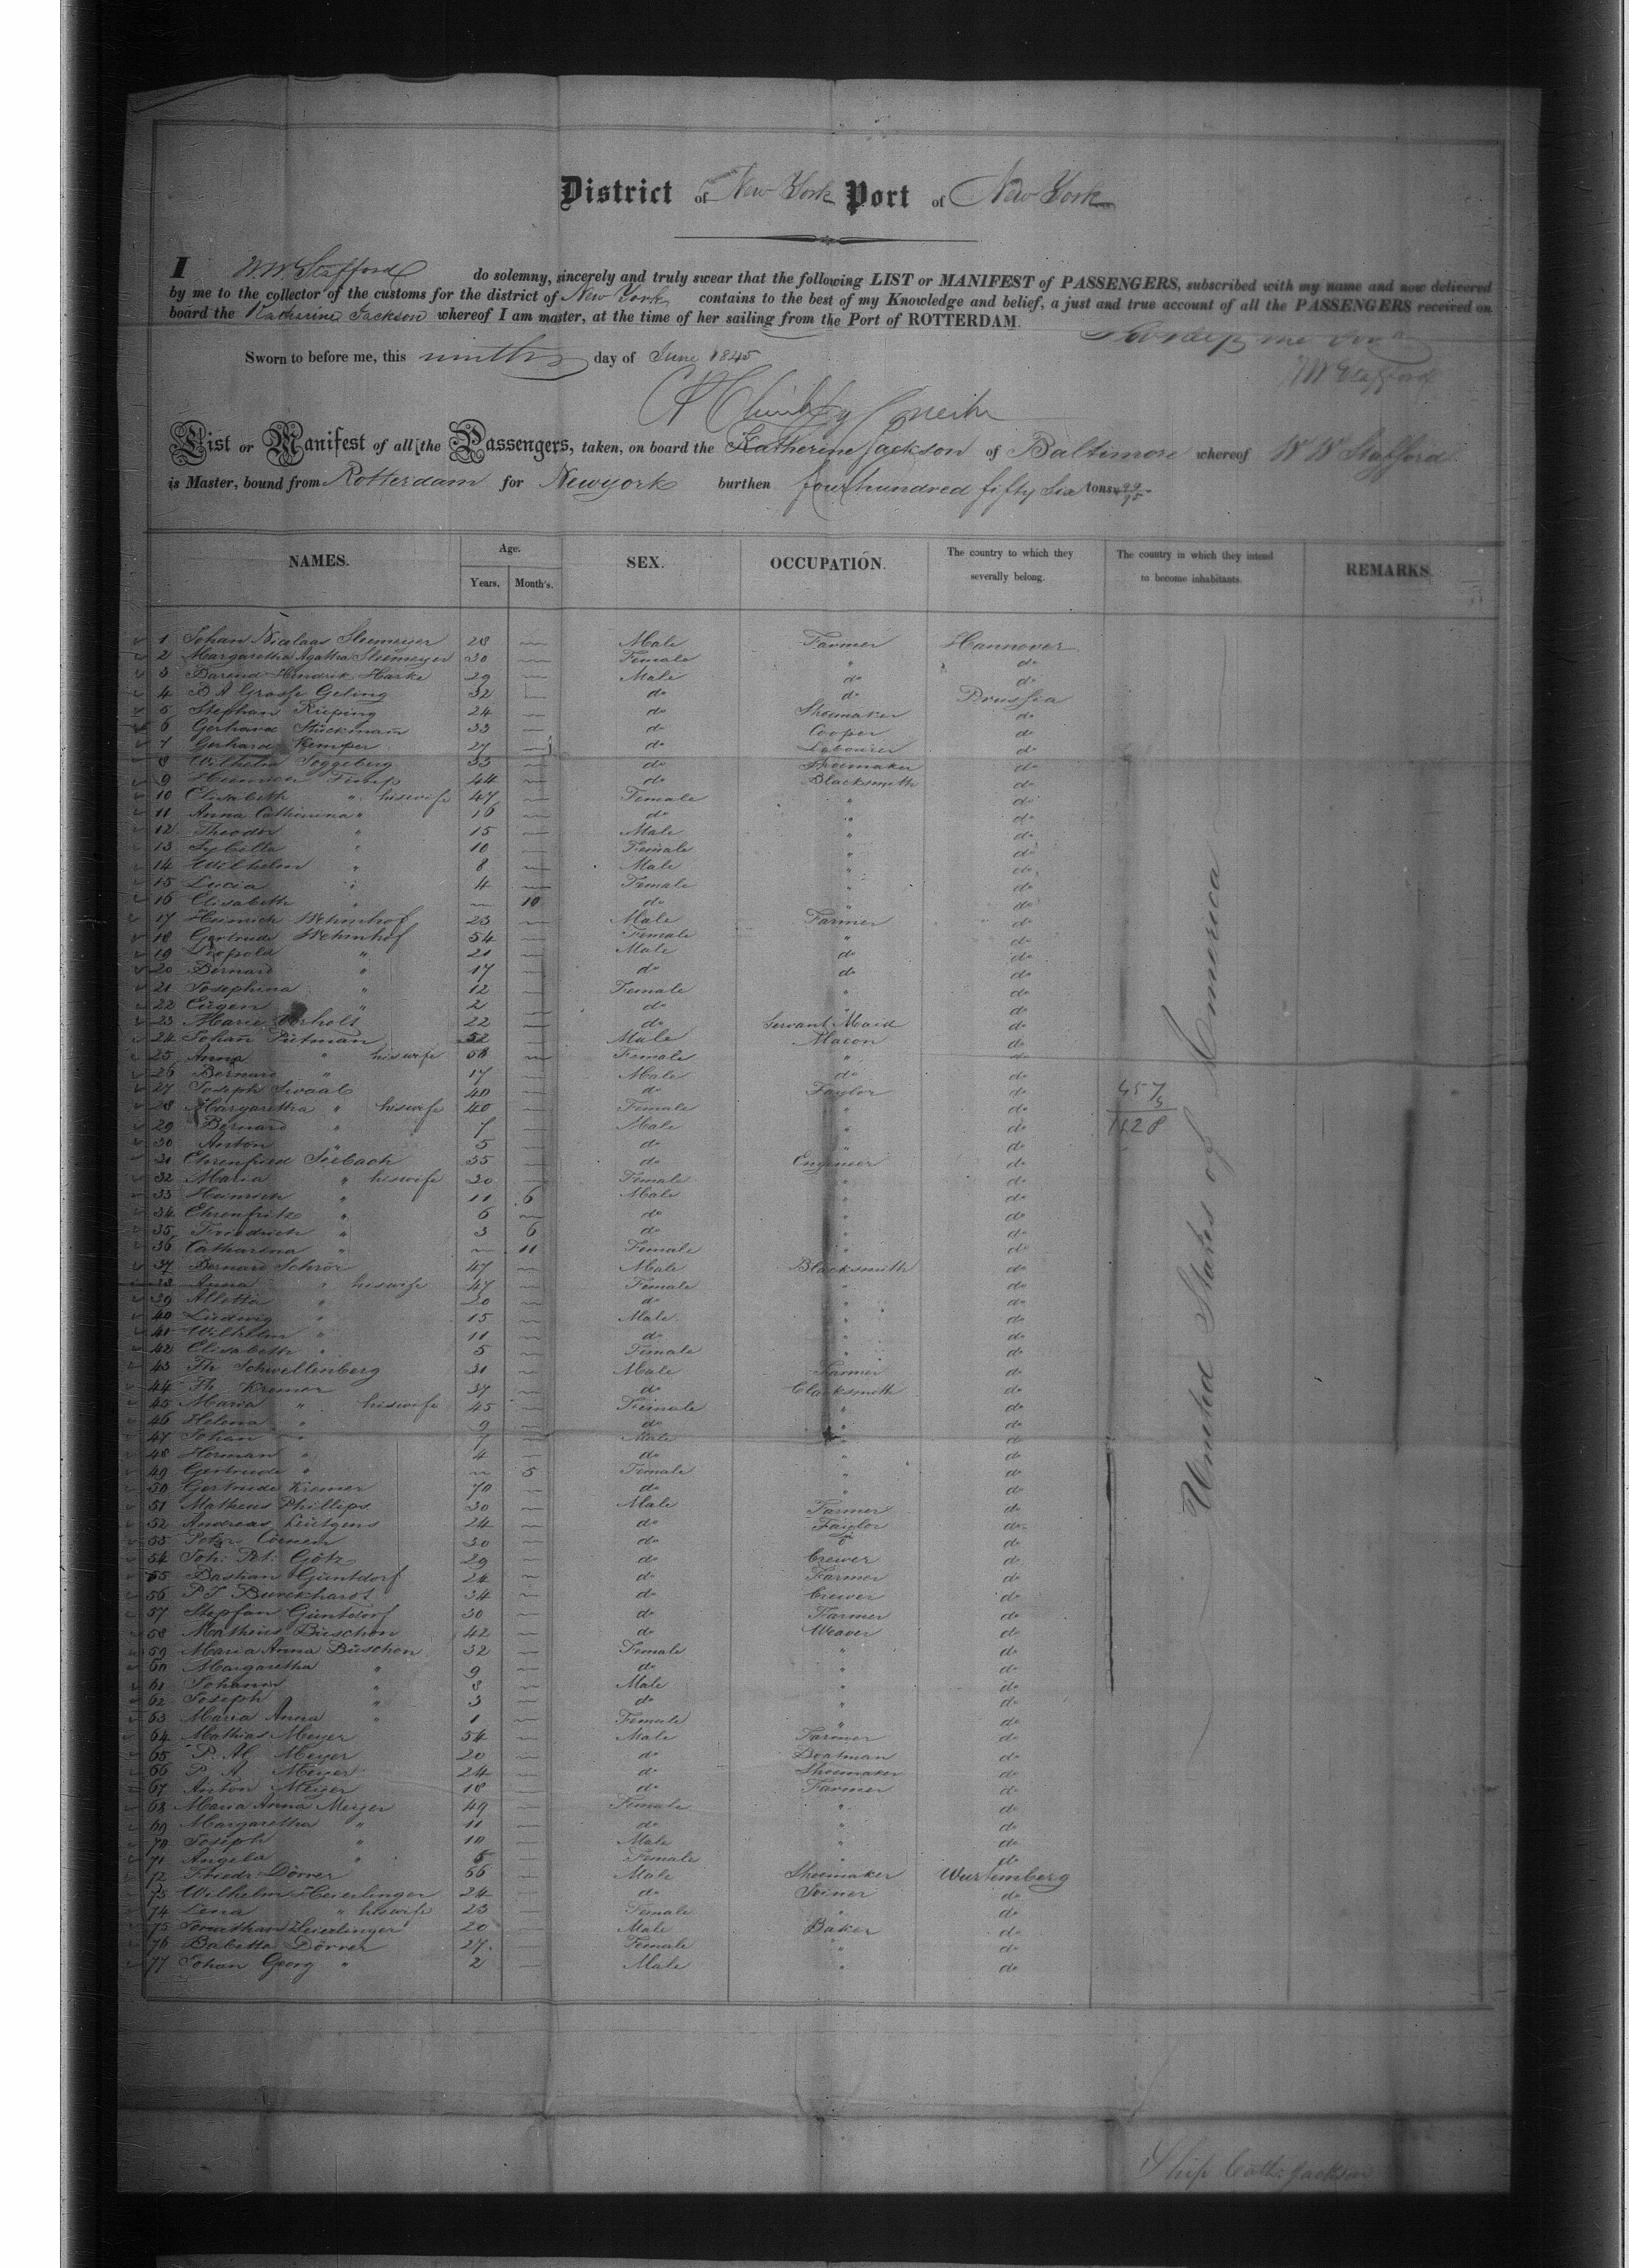 District of New York Port of New York
I W. W. Stafford do solemny, sincerely and truly swear that the following LIST or MANIFEST of PASSENGERS, subscribed with my name and now delivered
by me to the collector of the customs for the district of New York contains to the best of my Knowledge and belief, a just and true account of all the PASSENGERS received on
board the Katherine Jackson whereof I am master, at the time of her sailing from the Port of ROTTERDAM.
Sworn to before me, this ninth day of June 1845
W W Stafford
List or Manifest of all the Passengers, taken, on board the Katherine Jackson of Baltimore whereof W W Stafford
is Master, bound from Rotterdam for Newyork burthen four hundred fifty Six tons
NAMES. Age. SEX. OCCUPATION. The country to which they The country in which they intend REMARKS.
Years. Month's. severally belong. to become inhabitants.
1 Johan Nicolaas Sleemeyer 28 — Male Farmer Hannover
2 Margaretha Agatha Sleemeyer 30 — Female " do
3 Barend Hendrik Harke 29 — Male do do
4 B A Grosse Geling 32 — do do Prussia
5 Stephan Rieping 24 — do Shoemaker do
6 Gerhard Stuckmann 33 — do Cooper do
7 Gerhard Kemper 27 — do Labourer do
8 Wilhelm Toggeberg 33 — do Shoemaker do
9 Heinrich 44 — do Blacksmith do
10 Elisabeth " his wife 47 — Female " do
11 Anna Catharina " 16 — do " do
12 Theodor " 15 — Male " do
13 Sybilla " 10 — Female " do
14 Wilhelm " 8 — Male " do
15 Lucia " 4 — Female " do
16 Elisabeth " — 10 do " do
17 Heinrich Wehmhof 23 — Male Farmer do
18 Gertrude Wehmhof 54 — Female " do
19 Leopold " 21 — Male do do
20 Bernard " 17 — do do do
21 Josephina " 12 — Female " do
22 Eugen " 2 — do " do
23 Marie 22 — do Servant Maid do
24 Johan Pietman 52 — Male Mason do
25 Anna " his wife — Female " do
26 Bernard " 17 — Male do do
27 Joseph Swaal 40 — do Taylor do
28 Margaretha " his wife 40 — Female " do
29 Bernard " 7 — Male " do
30 Anton " 5 — do " do
31 Ehrenfried Seebach 35 — do Engineer do
32 Maria " his wife 30 — Female " do
33 Heinrich " 11 6 Male " do
34 Ehrenfritz " 6 — do " do
35 Friedrich " 3 6 do " do
36 Catharina " — 11 Female " do
37 Bernard Schrör 47 — Male Blacksmith do
38 Anna " his wife 47 — Female " do
39 Alletta " 20 — do " do
40 Ludwig " 15 — Male " do
41 Wilhelm " 11 — do " do
42 Elisabeth " 5 — Female " do
43 Th Schwellenberg 31 — Male Farmer do
44 Th Kremer 37 — do Clacksmith do
45 Maria " his wife 45 — Female " do
46 Helena " 9 — do " do
47 Johan " 7 — Male " do
48 Herman " 4 — do " do
49 Gertrude " — 5 Female " do
50 Gertrude Kremer 70 — do " do
51 Matheus Phillips 30 — Male Farmer do
52 Andreas Lütgens 24 — do Taylor do
53 Peter Coenen 30 — do do
54 Joh: Pet: Götz 29 — do Crewer do
55 Bastian Güntdorf 24 — do Farmer do
56 P J Burckhardt 34 — do Crewer do
57 Stepfan Güntdorf 30 — do Farmer do
58 Matheus Büschon 42 — do Weaver do
59 Maria Anna Büschon 32 — Female " do
60 Margaretha " 9 — do " do
61 Johann " 8 — Male " do
62 Joseph " 3 — do " do
63 Maria Anna " 1 — Female " do
64 Mathias Meyer 54 — Male Farmer do
65 P. M. Meyer 20 — do Boatman do
66 P. A. Meyer 24 — do Shoemaker do
67 Anton Meyer 18 — do Farmer do
68 Maria Anna Meyer 49 — Female " do
69 Margaretha " 11 — do " do
70 Joseph " 10 — Male " do
71 Angela " 5 — Female " do
72 Friedr Dörrer 66 — Male Shoemaker Wurtemberg
73 Wilhelm Heierlinger 24 — do Joiner do
74 Lena " his wife 23 — Female " do
75 Jonathan Heierlinger 20 — Male Baker do
76 Babetta Dörrer 27 — Female " do
77 Johan Georg " 2 — Male " do
United States of America
Ship Cath: Jackson